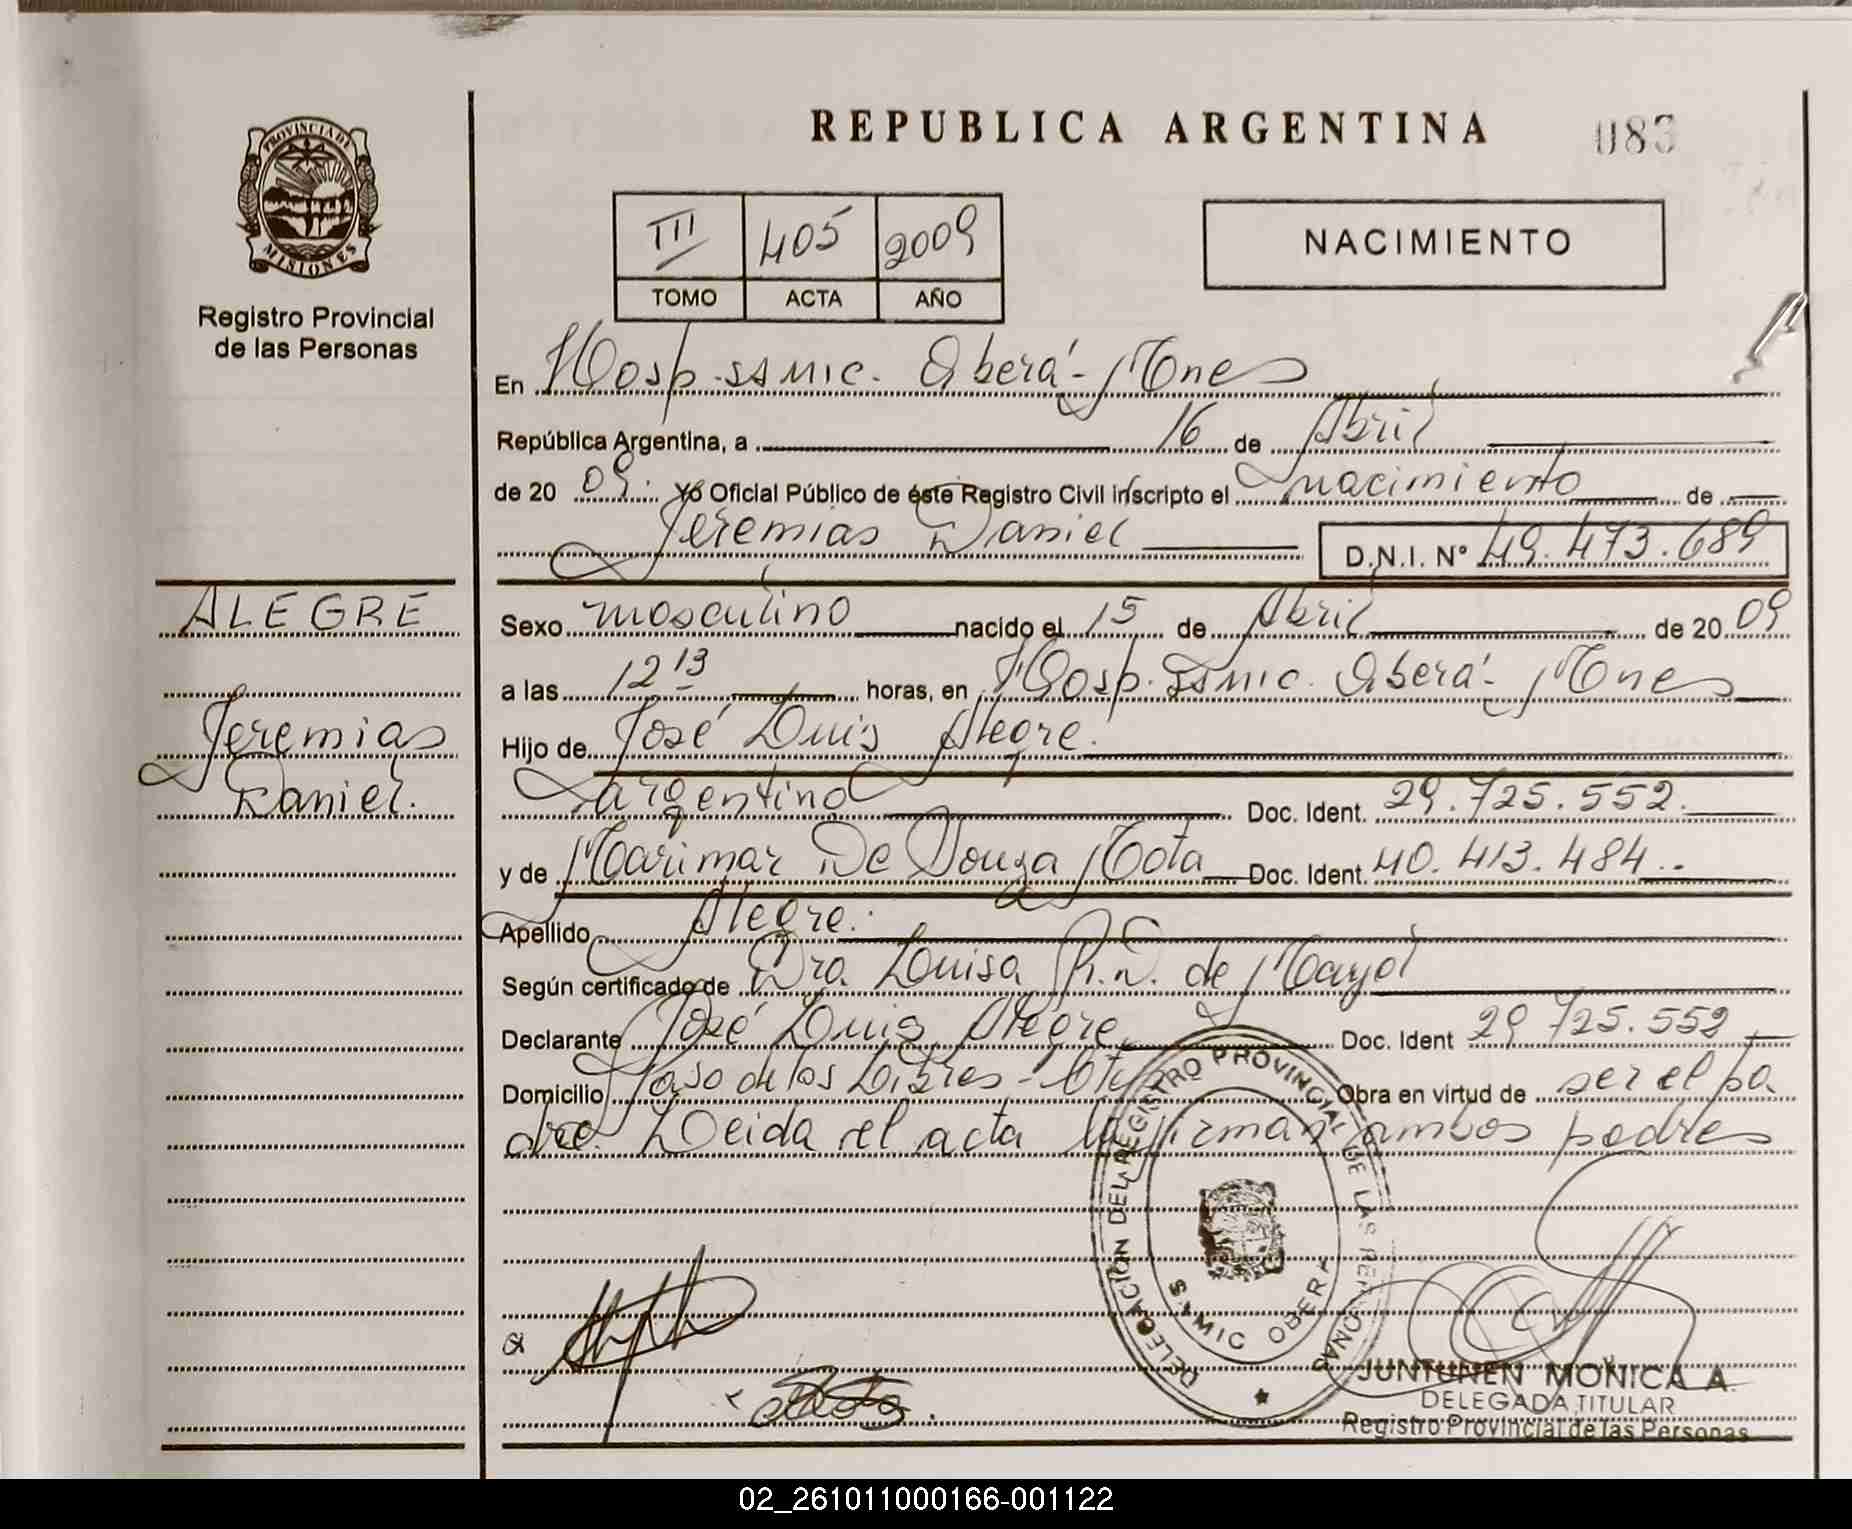 PROVINCIA DE
MISIONES
Registro Provincial
de las Personas
ALEGRE
Jeremias
Daniel.
REPUBLICA ARGENTINA
083
III 405 2009
TOMO ACTA AÑO
NACIMIENTO
En Hosp. SAMIC. Oberá - Mnes
República Argentina, a 16 de Abril
de 20 09. Yo Oficial Público de éste Registro Civil inscripto el nacimiento de
Jeremias Daniel D.N.I. Nº 49.473.689
Sexo masculino nacido el 15 de Abril de 20 09
a las 12 13 horas, en Hosp. SAMIC. Oberá - Mnes
Hijo de José Luis Alegre.
argentino Doc. Ident. 29.725.552.
y de Marimar De Souza Mota Doc. Ident. 40.413.484.
Apellido Alegre.
Según certificado de Dra. Luisa R.D. de Mayol
Declarante José Luis Alegre Doc. Ident 29 725.552
Domicilio Paso de los Libres - Obra en virtud de ser el pa
dre. Leida el acta la firman ambos padres
DELEGACION DEL REGISTRO PROVINCIAL DE LAS PERSONAS
SAMIC OBERA
JUNTUNEN MONICA A.
DELEGADA TITULAR
Registro Provincial de las Personas
02_261011000166-001122